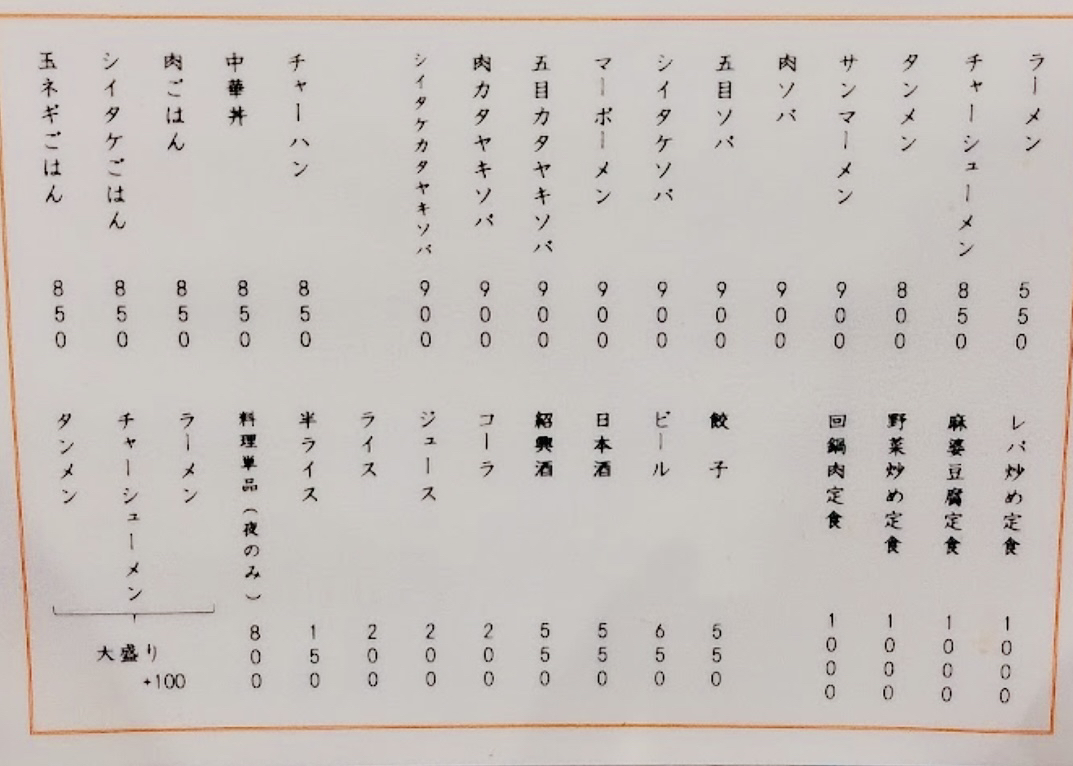 ラーメン 550
チャーシューメン 850
タンメン 800
サンマーメン 900
肉ソバ 900
五目ソバ 900
シイタケソバ 900
マーボーメン 900
五目カタヤキソバ 900
肉カタヤキソバ 900
シイタケカタヤキソバ 900
チャーハン 850
中華丼 850
肉ごはん 850
シイタケごはん 850
玉ネギごはん 850
レバ炒め定食 1000
麻婆豆腐定食 1000
野菜炒め定食 1000
回鍋肉定食 1000
餃子 550
ビール 650
日本酒 550
紹興酒 550
コーラ 200
ジュース 200
ライス 200
半ライス 150
料理単品(夜のみ) 800
ラーメン
チャーシューメン
タンメン
大盛り
+100